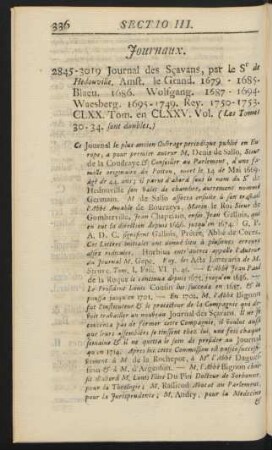 336 SECTIO III.
Journaux.
2845-3019 Journal des Sçavans, par le Sr de
Hedouville. Amst. le Grand. 1679 - 1685.
Blaeu. 1686. Wolfgang. 1687 - 1694.
Waesberg. 1695-1749. Rey. 1750-1753.
CLXX. Tom. en CLXXV. Vol. (Les Tomes
30-34. sont doubles.)
Ce Journal le plus ancien Ouvrage periodique publié en Eu-
rope, a pour premier auteur M. Denis de Sallo, Sieur
de la Coudraye & Conseiller au Parlement, d'une fa-
mille originaire de Poitou, mort le 14 de Mai 1669.
âgé de 44 ans; il parut d'abord sous le nom du Sr de
Hedouville son valet de chambre, autrement nommé
Germain. M. de Sallo
l'Abbé Amable de Bourzeys, Marin le Roi Sieur de
Gomberville, Jean Chapelain, enfin Jean Gallois, qui
en eut la direction depuis 1666. jusqu'en 1674. G. P.
A. D. C. signifient Gallois, Prêtre, Abbé de Cores.
Ces Lettres initiales ont donné lieu à plusieurs erreurs
du Journal M. Gepe,
Struve. Tom. I. Fasc. VI. p. 46. — L'Abbé Jean Paul
de la Roque le continua depuis 1675. jusqu'en 1686. —
Le President Louis Cousin lui succeda en 1687. & le
poussa jusqu'en 1701. — En 1702. M. l'Abbé Bignon
fut l'instituteur & le protecteur de la Compagnie qui de-
voit travailler au nouveau Journal des Sçavans. On ne
connoitra pas de former cette Compagnie,
que leurs assemblées se tinssent chez lui, une chaque
semaine & il ne quitta le soin de présider au Journal
qu'en 1714.
& à M. d'Argenson. — M. l'Abbé Bignon
d'abord M. Louis Ellies Du Pin Docteur de Sorbonne,
pour la Theologie; M. Rassicod Avocat au Parlement,
pour la Jurisprudence; M. Andry, pour la Medecine
&